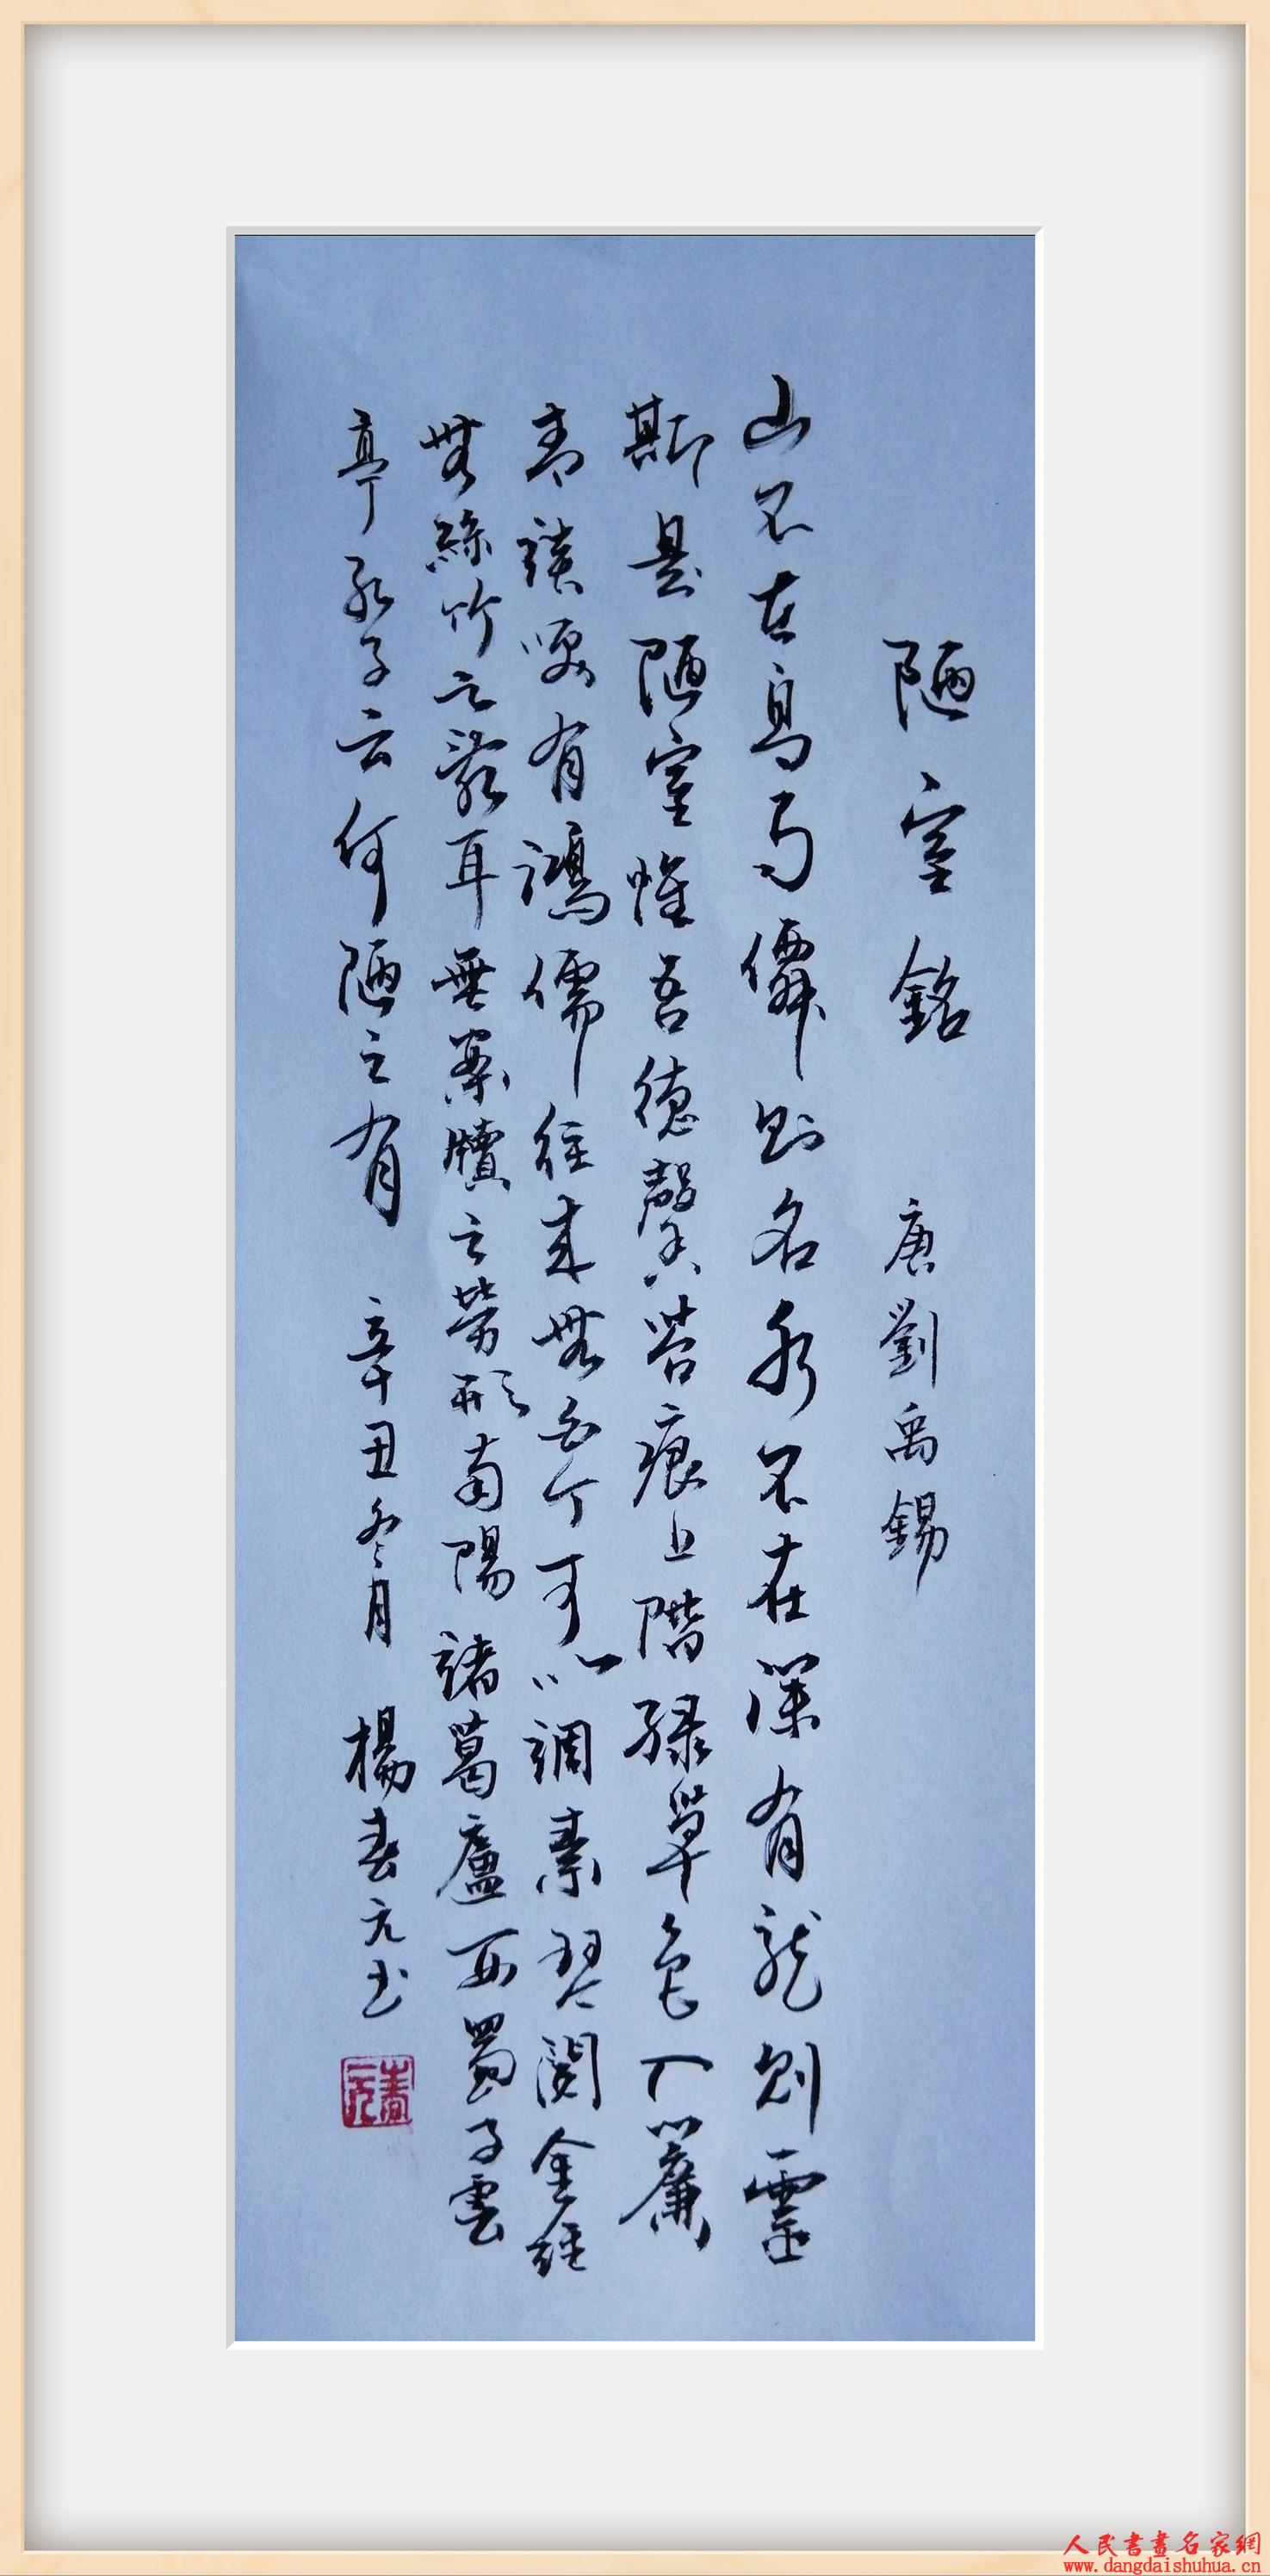 陋室銘 唐劉禹錫
山不在高有僊則名水不在深有龍則靈
斯是陋室惟吾德馨苔痕上階緑草色入簾
青談笑有鴻儒往来無白丁可以調素琴閱金經
無絲竹之亂耳無案牘之勞形南陽諸葛廬西蜀子雲
亭孔子云何陋之有 辛丑冬月 楊春元书
春元
人民書畫名家網
www.dangdaishuhua.cn